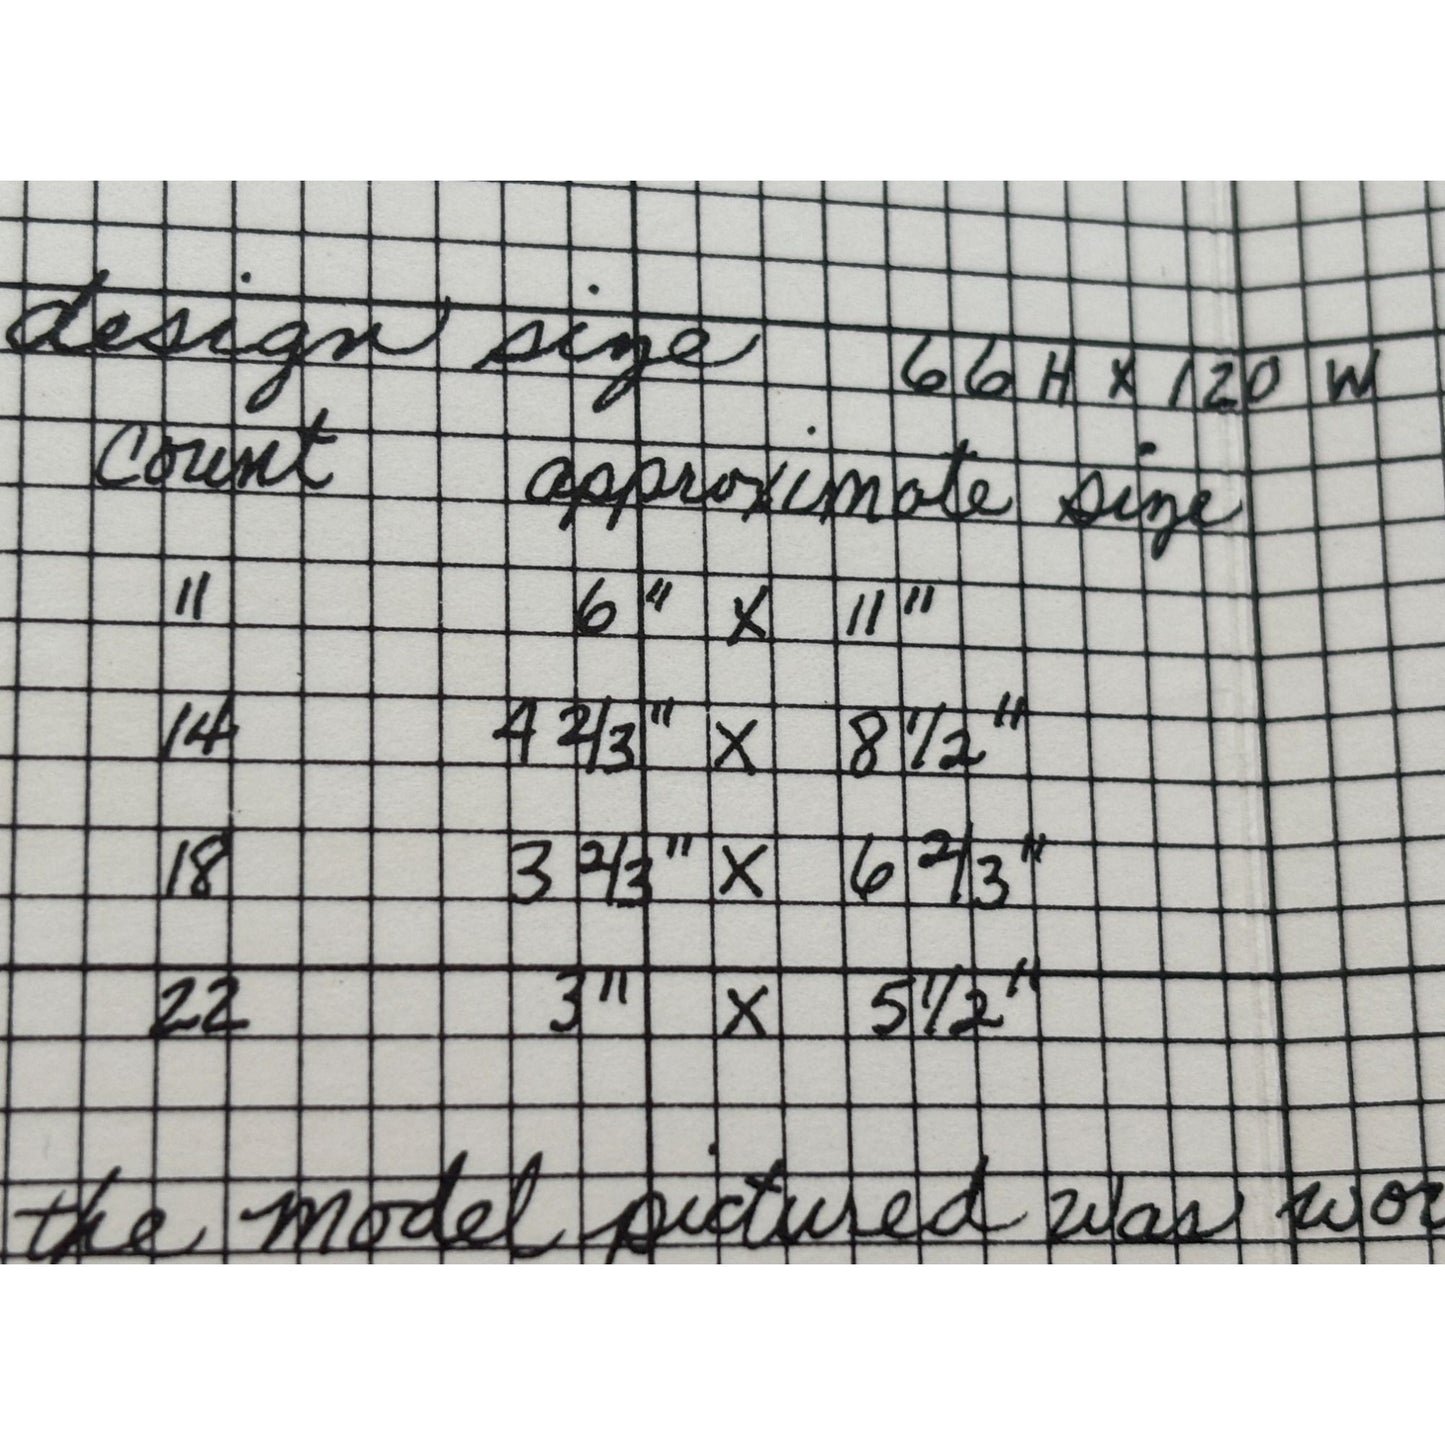 design size 66 H X 120 W
count approximate size
11 6" X 11"
14 4 2/3" X 8 1/2"
18 3 2/3" X 6 2/3"
22 3" X 5 1/2"
the model pictured was